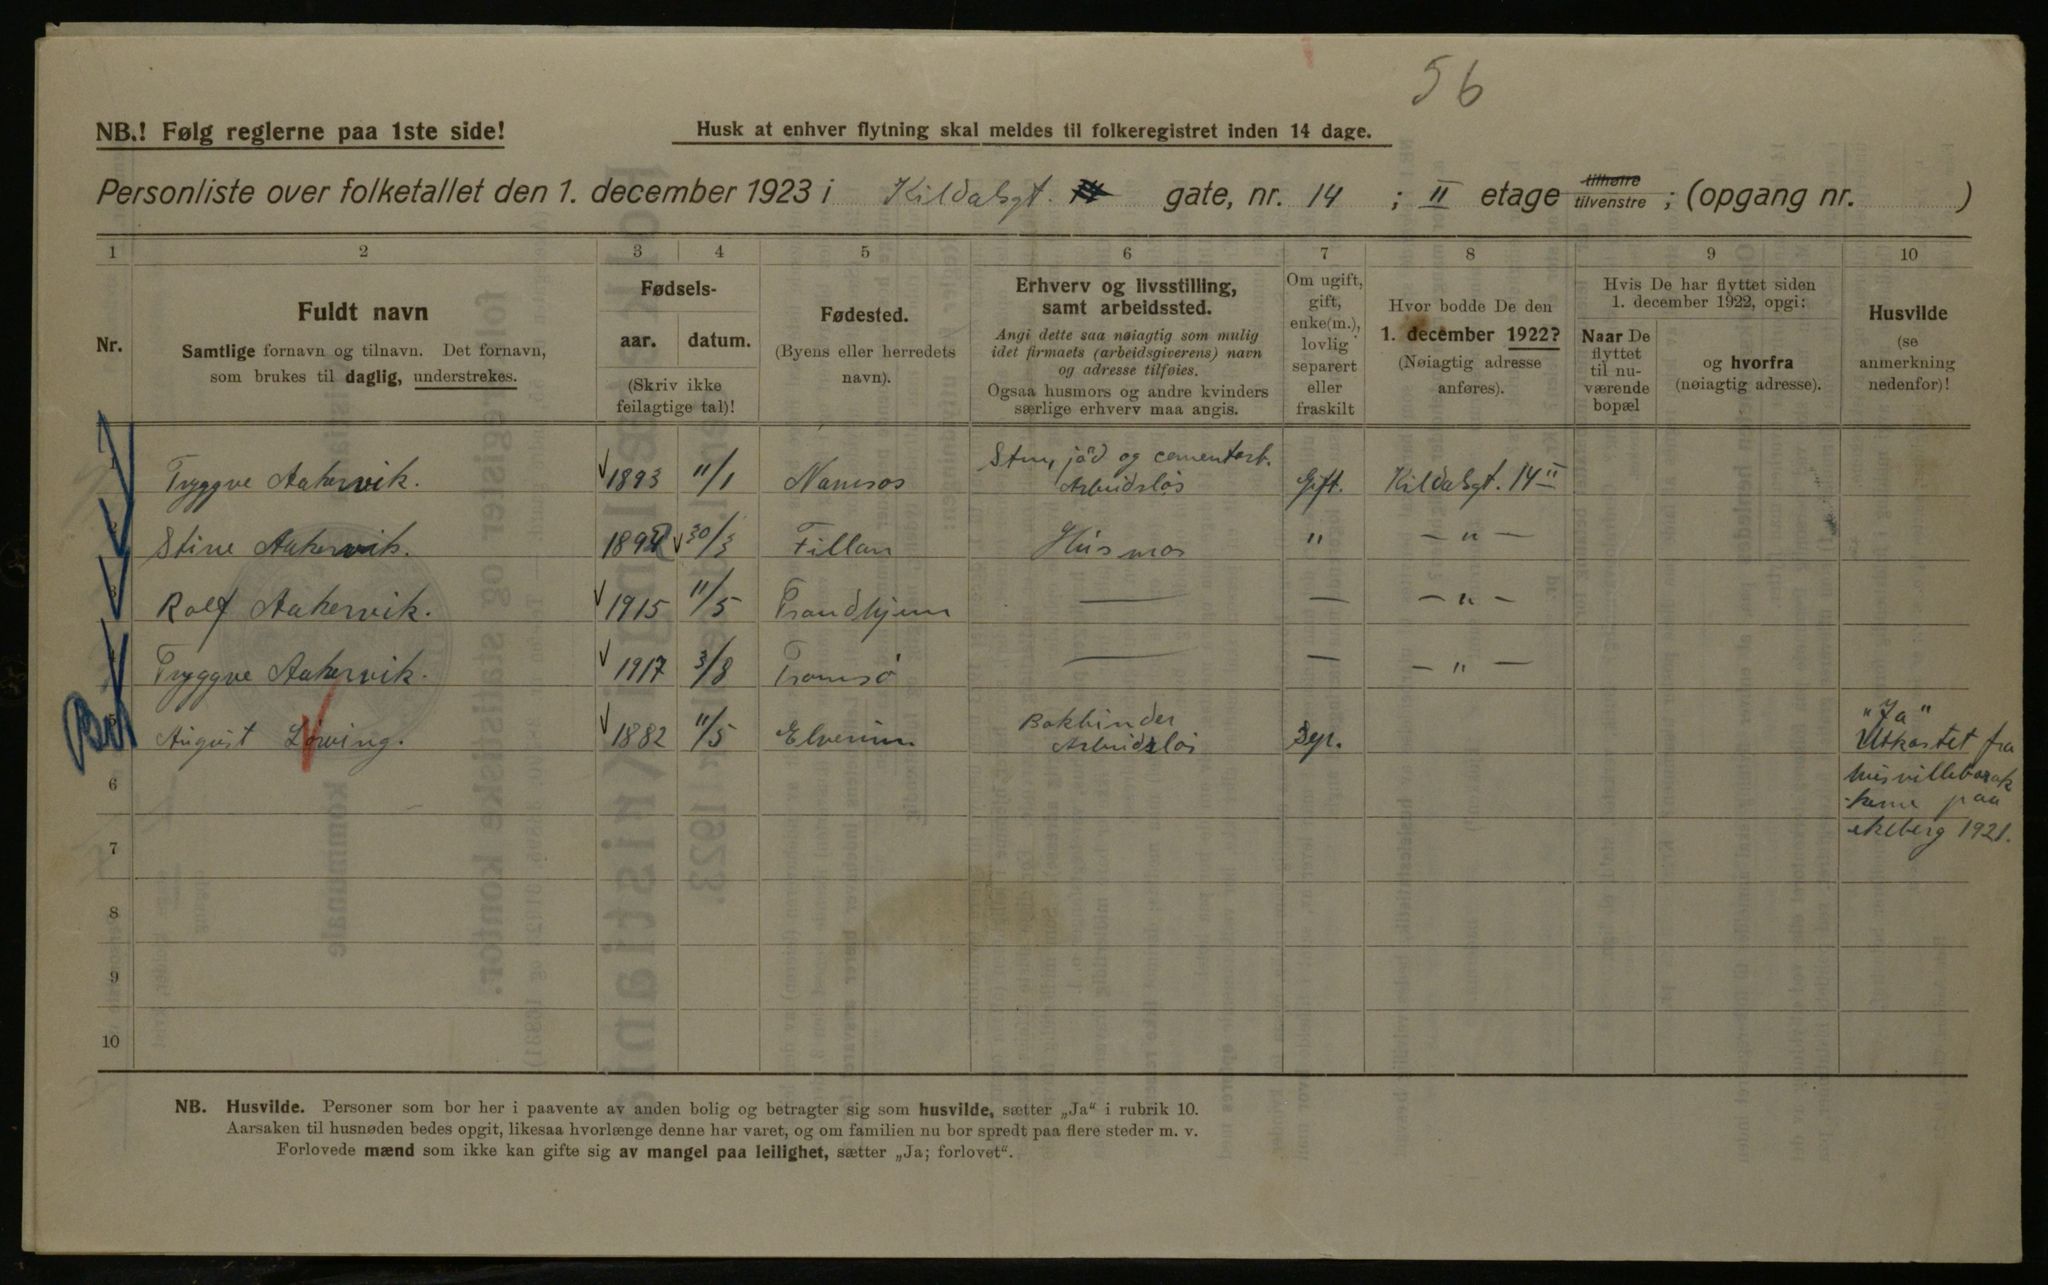 56
NB.! Følg reglerne paa 1ste side!
Husk at enhver flytning skal meldes til folkeregistret inden 14 dage.
Personliste over folketallet den 1. december 1923 i Kildalsgt. gate, nr. 14 ; II etage tilhøire tilvenstre ; (opgang nr. )
1 2 3 4 5 6 7 8 9 10
Nr.
Fuldt navn
Samtlige fornavn og tilnavn. Det fornavn,
som brukes til daglig, understrekes.
Fødsels-
aar. datum.
(Skriv ikke
feilagtige tal)!
Fødested.
(Byens eller herredets
navn).
Erhverv og livsstilling,
samt arbeidssted.
Angi dette saa nøiagtig som mulig
idet firmaets (arbeidsgiverens) navn
og adresse tilføies.
Ogsaa husmors og andre kvinders
særlige erhverv maa angis.
Om ugift,
gift,
enke(m.),
lovlig
separert
eller
fraskilt
Hvor bodde De den
1. december 1922?
(Nøiagtig adresse
anføres).
Hvis De har flyttet siden
1. december 1922, opgi:
Naar De
flyttet
til nu-
værende
bopæl
og hvorfra
(nøiagtig adresse).
Husvilde
(se
anmerkning
nedenfor)!
1 Tryggve Aakervik. 1893 11/1 Namsos Sten, jød og cementarb. Arbeidsløs Gift. Kildalsgt. 14 II
2 Stine Aakervik. 189 30/3 Fillan Husmor " — " —
3 Rolf Aakervik. 1915 11/5 Trondhjem — — — " —
4 Tryggve Aakervik. 1917 3/8 Tromsø — — — " —
5 August Lørving. 1882 11/5 Elverum Bokbinder Arbeidsløs Sep. "Ja"
Utkastet fra
husvillebarak
kerne paa
ekeberg 1921.
6
7
8
9
10
NB. Husvilde. Personer som bor her i paavente av anden bolig og betragter sig som husvilde, sætter „Ja“ i rubrik 10.
Aarsaken til husnøden bedes opgit, likesaa hvorlænge denne har varet, og om familien nu bor spredt paa flere steder m. v.
Forlovede mænd som ikke kan gifte sig av mangel paa leilighet, sætter „Ja; forlovet“.